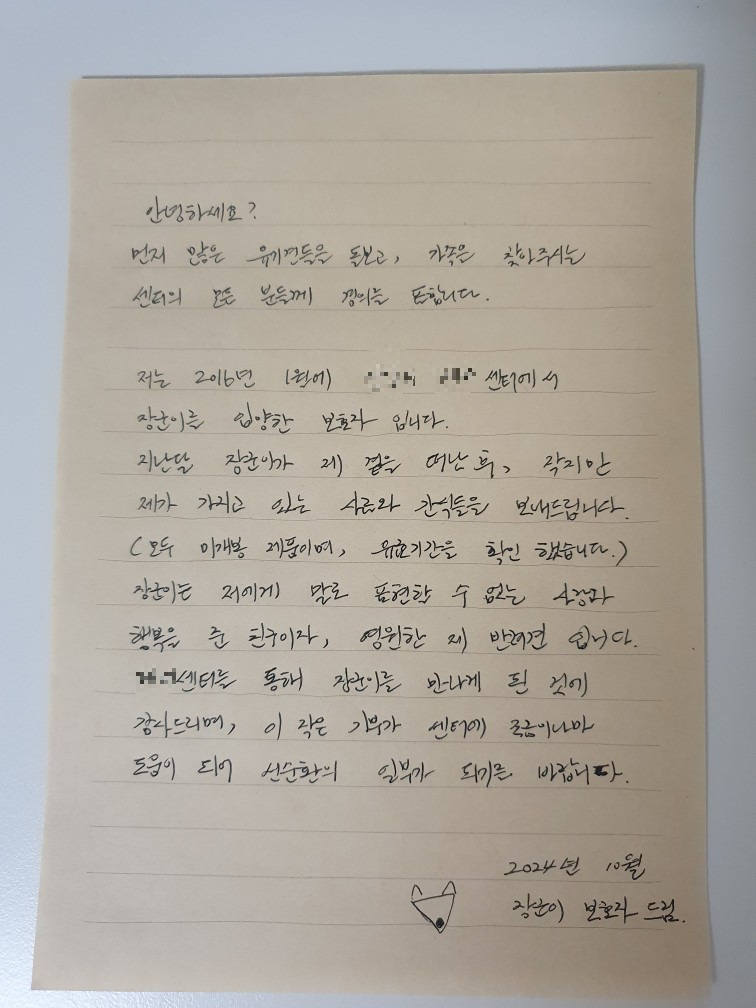 안녕하세요?
먼저 많은 유기견들을 돌보고, 가족을 찾아주시는
센터의 모든 분들께 경의를 표합니다.
저는 2016년 1월에 센터에서
장군이를 입양한 보호자 입니다.
지난달 장군이가 제 곁을 떠난 후, 작지만
제가 가지고 있는 사료와 간식들을 보내드립니다.
(모두 미개봉 제품이며, 유효기간을 확인 했습니다.)
장군이는 저에게 말로 표현할 수 없는 사랑과
행복을 준 친구이자, 영원한 제 반려견 입니다.
센터를 통해 장군이를 만나게 된 것에
감사드리며, 이 작은 기부가 센터에 조금이나마
도움이 되어 선순환의 일부가 되기를 바랍니다.
2024년 10월
장군이 보호자 드림.